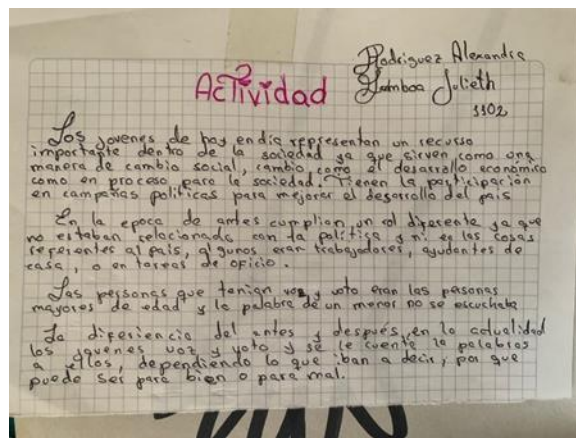 Rodriguez Alexandra
Actividad
Gamboa Julieth
1102
Los jovenes de hoy en dia representan un recurso
importante dentro de la sociedad ya que sirven como una
manera de cambio social, cambio como el desarrollo económico
como en proceso para la sociedad. Tienen la participación
en campañas políticas para mejorar el desarrollo del pais
En la epoca de antes cumplian un rol diferente ya que
no estaban relacionado con la política y ni en las cosas
referentes al país, algunos eran trabajadores, ayudantes de
casa, o en tareas de oficio.
Las personas que tenian voz y voto eran las personas
mayores de edad y la palabra de un menor no se escuchaba
La diferiencia del antes y después, en la actualidad
los jovenes voz y voto y se le cuenta la palabras
a ellos, dependiendo lo que iban a decir, por que
puede ser para bien o para mal.